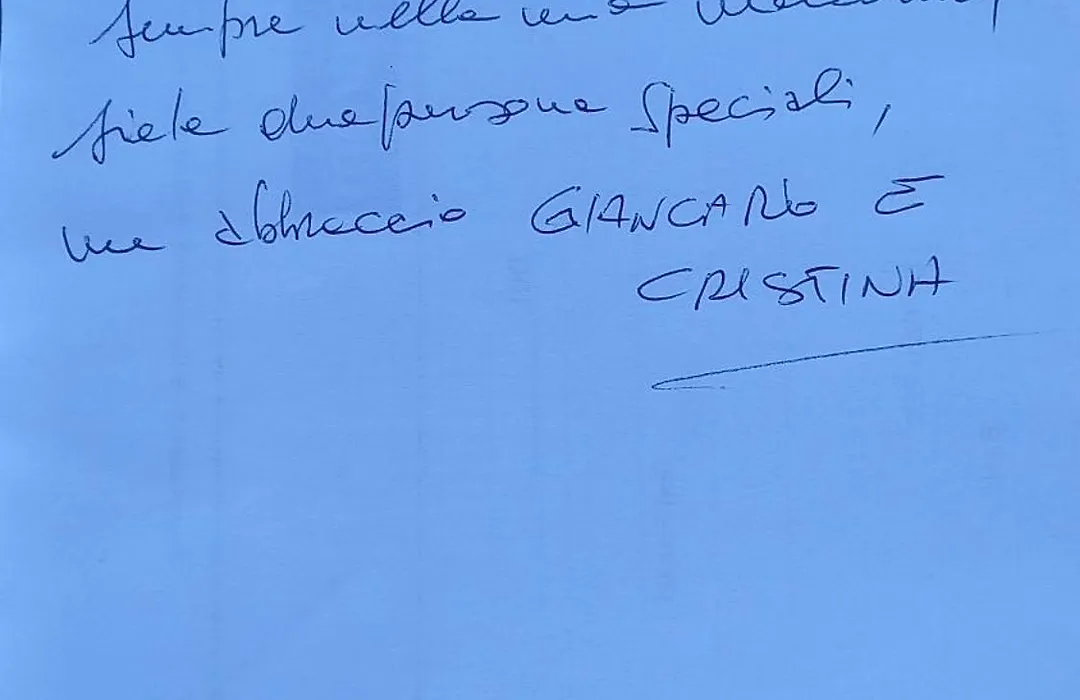 sempre nella mia
siete due persone speciali,
un abbraccio GIANCARLO E
CRISTINA